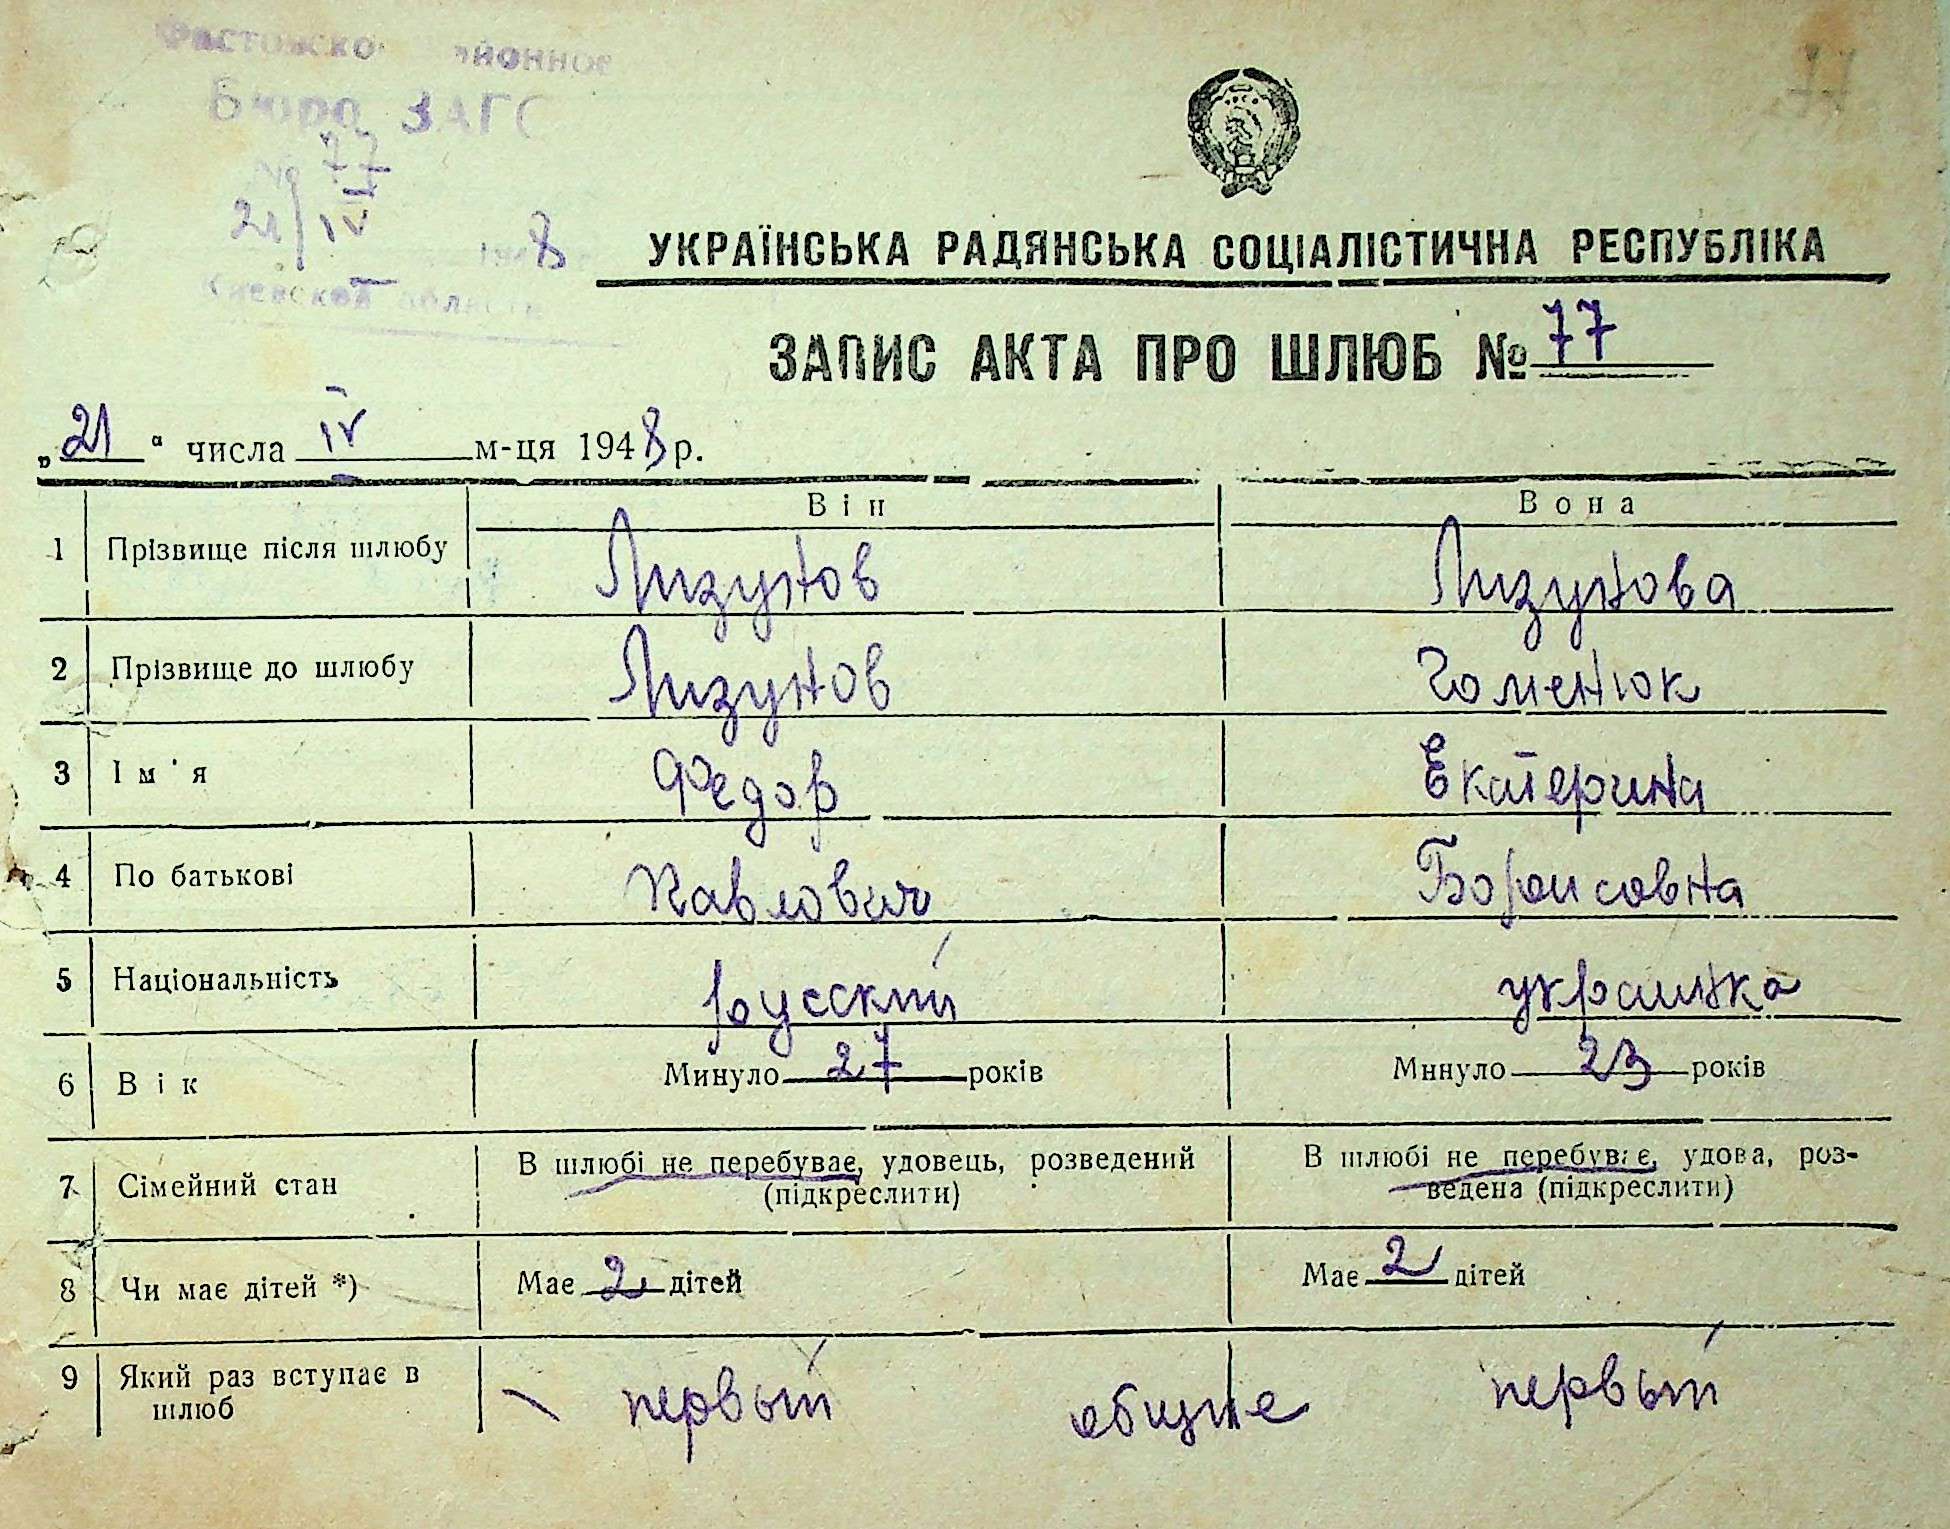 Фастовское районное
Бюро ЗАГС
№ 77
21/IV 1948
Киевской области
77
УКРАЇНСЬКА РАДЯНСЬКА СОЦІАЛІСТИЧНА РЕСПУБЛІКА
ЗАПИС АКТА ПРО ШЛЮБ № 77
„21“ числа IV м-ця 1948 р.
Він Вона
1 Прізвище після шлюбу Лизунов Лизунова
2 Прізвище до шлюбу Лизунов Гоменюк
3 Ім'я Федор Екатерина
4 По батькові Павлович Борисовна
5 Національність русский украинка
6 Вік Минуло 27 років Минуло 23 років
7 Сімейний стан В шлюбі не перебуває, удовець, розведений (підкреслити) В шлюбі не перебуває, удова, роз-
ведена (підкреслити)
8 Чи має дітей *) Має 2 дітей Має 2 дітей
9 Який раз вступає в
шлюб первый общие первый